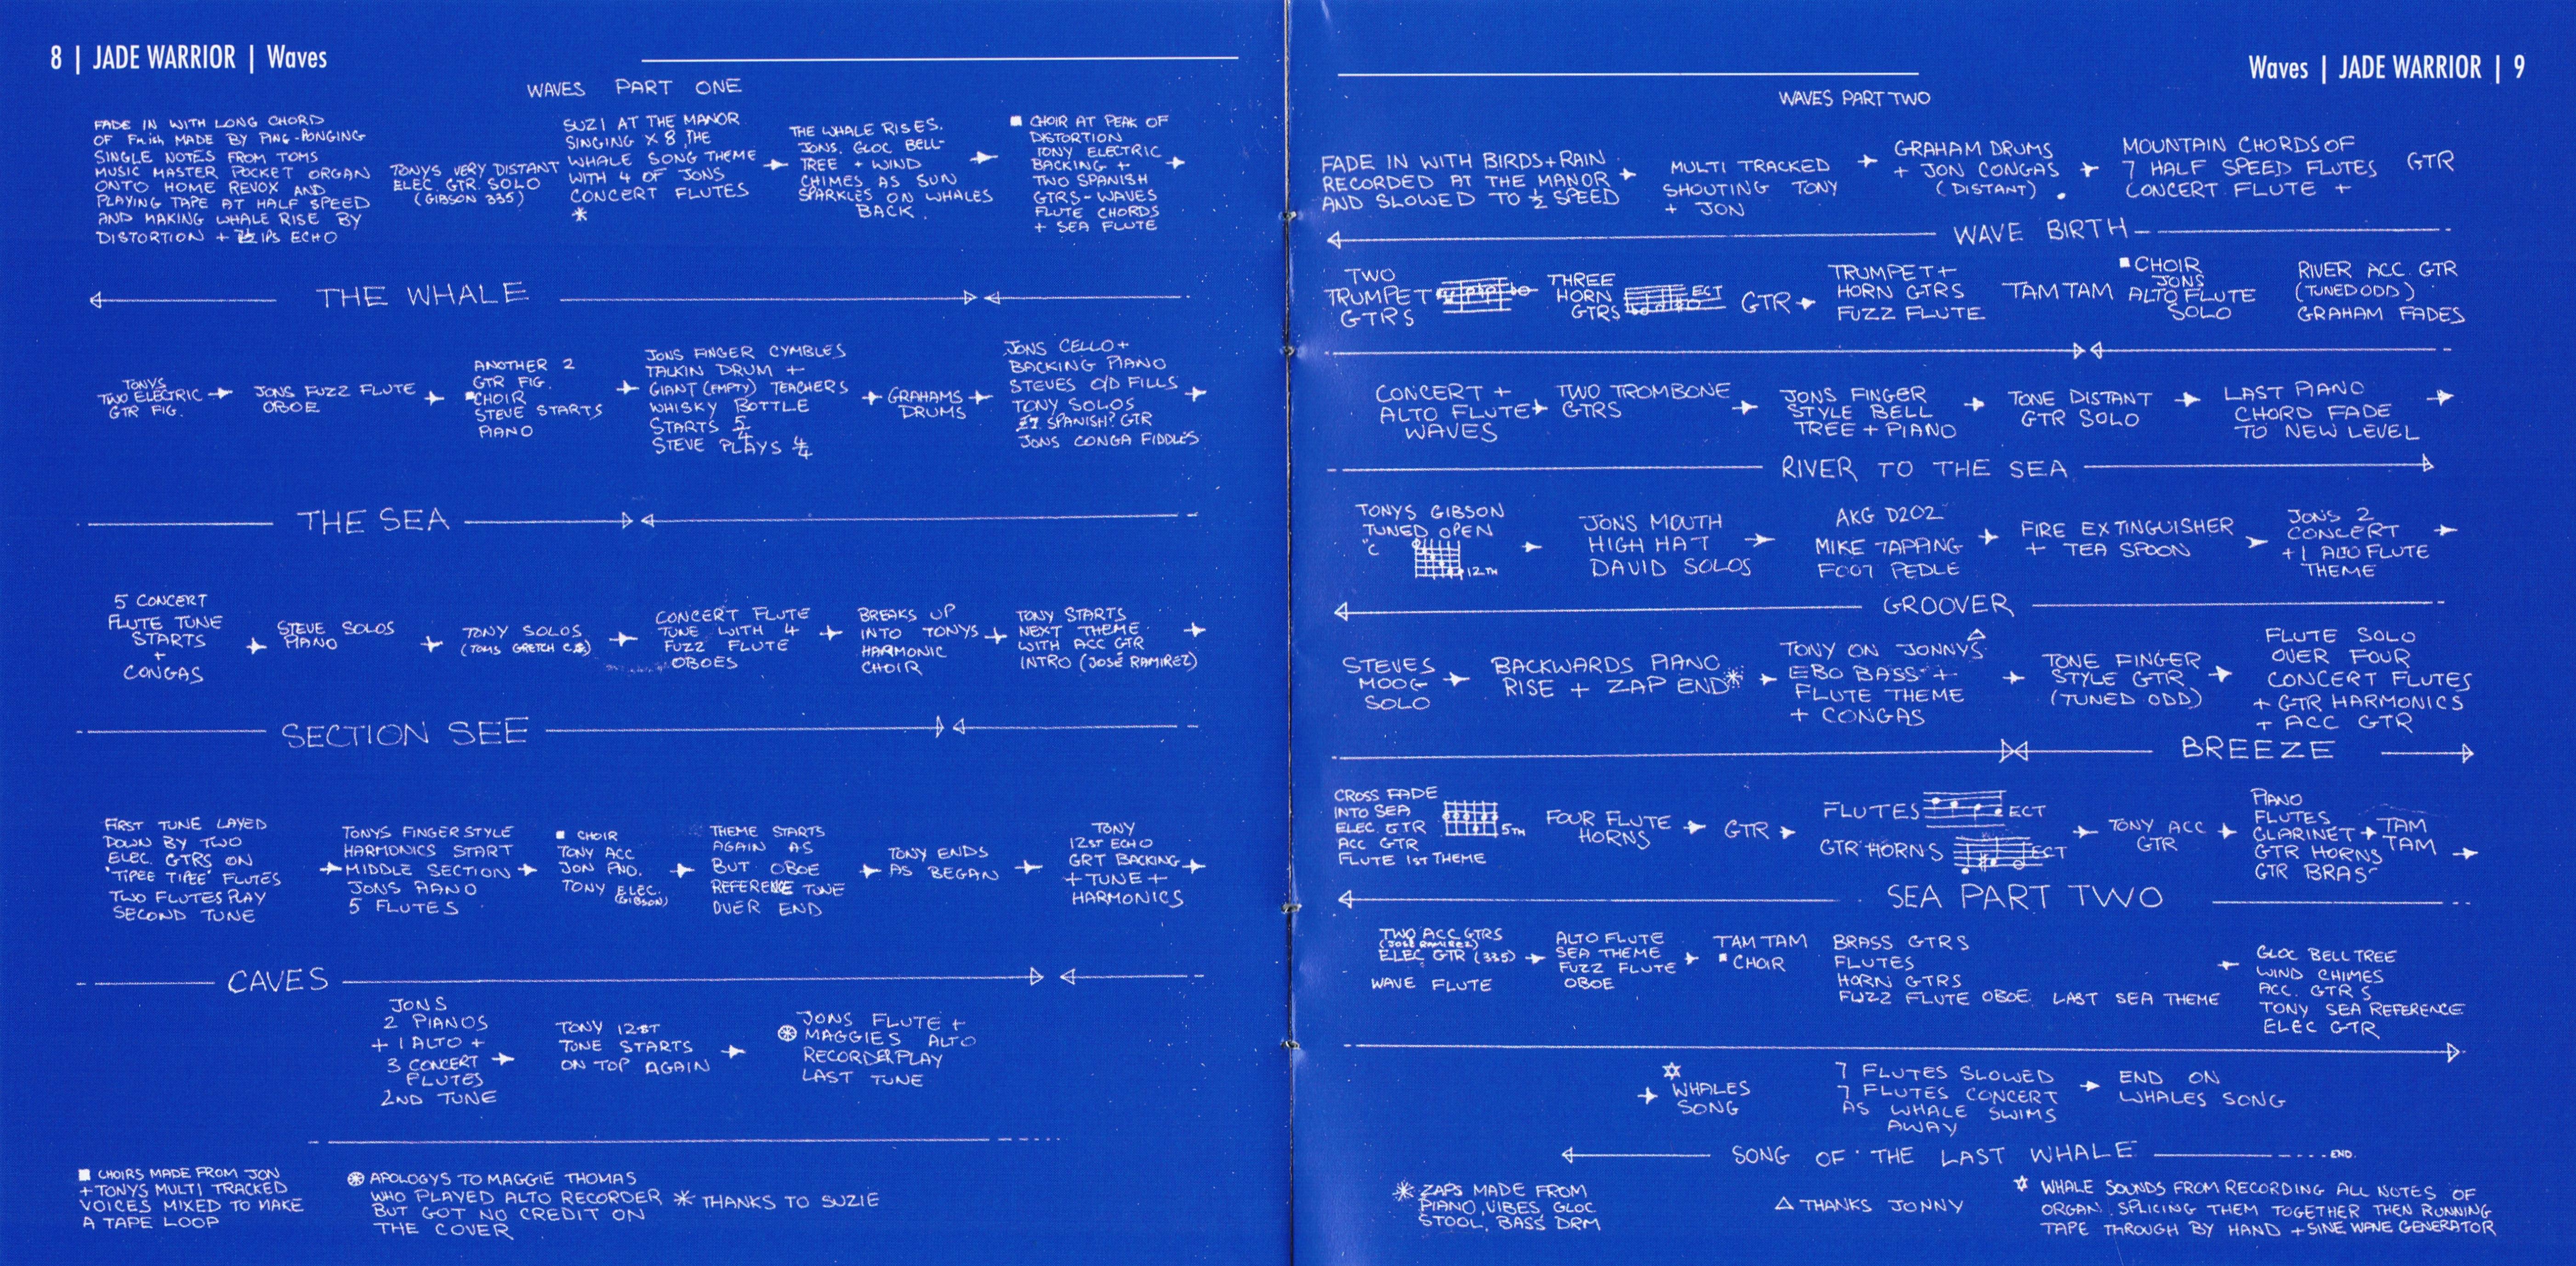 8 | JADE WARRIOR | Waves
WAVES PART ONE
FADE IN WITH LONG CHORD
OF Fmish MADE BY PING-PONGING
SINGLE NOTES FROM TOMS
MUSIC MASTER POCKET ORGAN
ONTO HOME REVOX AND
PLAYING TAPE AT HALF SPEED
AND MAKING WHALE RISE BY
DISTORTION + 7½ IPS ECHO
TONYS VERY DISTANT
ELEC. GTR. SOLO
(GIBSON 335)
SUZI AT THE MANOR
SINGING X 8 THE
WHALE SONG THEME
WITH 4 OF JONS
CONCERT FLUTES
*
THE WHALE RISES.
JONS. GLOC BELL-
TREE + WIND
CHIMES AS SUN
SPARKLES ON WHALES
BACK.
■ CHOIR AT PEAK OF
DISTORTION
TONY ELECTRIC
BACKING +
TWO SPANISH
GTRS-WAVES
FLUTE CHORDS
+ SEA FLUTE
THE WHALE
TONYS
TWO ELECTRIC
GTR FIG.
JONS FUZZ FLUTE
OBOE
ANOTHER 2
GTR FIG.
■CHOIR
STEVE STARTS
PIANO
JONS FINGER CYMBLES
TALKIN DRUM +
GIANT (EMPTY) TEACHERS
WHISKY BOTTLE
STARTS 5/4
STEVE PLAYS 4/4
GRAHAMS
DRUMS
JONS CELLO+
BACKING PIANO
STEVES O/D FILLS
TONY SOLOS
SPANISH? GTR
JONS CONGA FIDDLES
THE SEA
5 CONCERT
FLUTE TUNE
STARTS
+
CONGAS
STEVE SOLOS
PIANO
TONY SOLOS
(TOMS GRETCH C.G)
CONCERT FLUTE
TUNE WITH 4
FUZZ FLUTE
OBOES
BREAKS UP
INTO TONYS
HARMONIC
CHOIR
TONY STARTS
NEXT THEME
WITH ACC GTR
INTRO (JOSÉ RAMIREZ)
SECTION SEE
FIRST TUNE LAYED
DOWN BY TWO
ELEC. GTRS ON
'TIPEE TIPEE' FLUTES
TWO FLUTES PLAY
SECOND TUNE
TONYS FINGER STYLE
HARMONICS START
MIDDLE SECTION
JONS PIANO
5 FLUTES
■ CHOIR
TONY ACC
JON PNO.
TONY ELEC.
(GIBSON)
THEME STARTS
AGAIN AS
BUT OBOE
REFERENCE TUNE
OVER END
TONY ENDS
AS BEGAN
TONY
12ST ECHO
GRT BACKING
+ TUNE +
HARMONICS
CAVES
JONS
2 PIANOS
+ 1 ALTO +
3 CONCERT
FLUTES
2ND TUNE
TONY 12ST
TUNE STARTS
ON TOP AGAIN
JONS FLUTE +
MAGGIES ALTO
RECORDER PLAY
LAST TUNE
■ CHOIRS MADE FROM JON
+ TONYS MULTI TRACKED
VOICES MIXED TO MAKE
A TAPE LOOP
⊛ APOLOGYS TO MAGGIE THOMAS
WHO PLAYED ALTO RECORDER
BUT GOT NO CREDIT ON
THE COVER
* THANKS TO SUZIE
Waves | JADE WARRIOR | 9
WAVES PART TWO
FADE IN WITH BIRDS+RAIN
RECORDED AT THE MANOR
AND SLOWED TO ½ SPEED
MULTI TRACKED
SHOUTING TONY
+ JON
GRAHAM DRUMS
+ JON CONGAS
(DISTANT)
MOUNTAIN CHORDS OF
7 HALF SPEED FLUTES
CONCERT FLUTE +
GTR
WAVE BIRTH
TWO
TRUMPET
GTRS
THREE
HORN
GTRS
ECT
GTR
TRUMPET+
HORN GTRS
FUZZ FLUTE
TAM TAM
■CHOIR
JONS
ALTO FLUTE
SOLO
RIVER ACC. GTR
(TUNED ODD)
GRAHAM FADES
CONCERT +
ALTO FLUTE
WAVES
TWO TROMBONE
GTRS
JONS FINGER
STYLE BELL
TREE + PIANO
TONE DISTANT
GTR SOLO
LAST PIANO
CHORD FADE
TO NEW LEVEL
RIVER TO THE SEA
TONYS GIBSON
TUNED OPEN
"C
12TH
JONS MOUTH
HIGH HAT
DAVID SOLOS
AKG D202
MIKE TAPPING
FOOT PEDLE
FIRE EXTINGUISHER
+ TEA SPOON
JONS 2
CONCERT
+ 1 ALTO FLUTE
THEME
GROOVER
STEVES
MOOG
SOLO
BACKWARDS PIANO
RISE + ZAP END*
TONY ON JONNYS
EBO BASS +
FLUTE THEME
+ CONGAS
TONE FINGER
STYLE GTR
(TUNED ODD)
FLUTE SOLO
OVER FOUR
CONCERT FLUTES
+ GTR HARMONICS
+ ACC GTR
BREEZE
CROSS FADE
INTO SEA
ELEC. GTR
ACC GTR
FLUTE 1ST THEME
5TH
FOUR FLUTE
HORNS
GTR
FLUTES ECT
GTR HORNS ECT
TONY ACC
GTR
PIANO
FLUTES
CLARINET
GTR HORNS
GTR BRASS
TAM
TAM
SEA PART TWO
TWO ACC GTRS
(JOSÉ RAMIREZ)
ELEC GTR (335)
WAVE FLUTE
ALTO FLUTE
SEA THEME
FUZZ FLUTE
OBOE
TAM TAM
■ CHOIR
BRASS GTRS
FLUTES
HORN GTRS
FUZZ FLUTE OBOE LAST SEA THEME
GLOC BELL TREE
WIND CHIMES
ACC. GTRS
TONY SEA REFERENCE
ELEC GTR
✡
WHALES
SONG
7 FLUTES SLOWED
7 FLUTES CONCERT
AS WHALE SWIMS
AWAY
END ON
WHALES SONG
SONG OF THE LAST WHALE
END.
* ZAPS MADE FROM
PIANO, VIBES, GLOC
STOOL, BASS DRM
△ THANKS JONNY
✡ WHALE SOUNDS FROM RECORDING ALL NOTES OF
ORGAN SPLICING THEM TOGETHER THEN RUNNING
TAPE THROUGH BY HAND + SINE WAVE GENERATOR